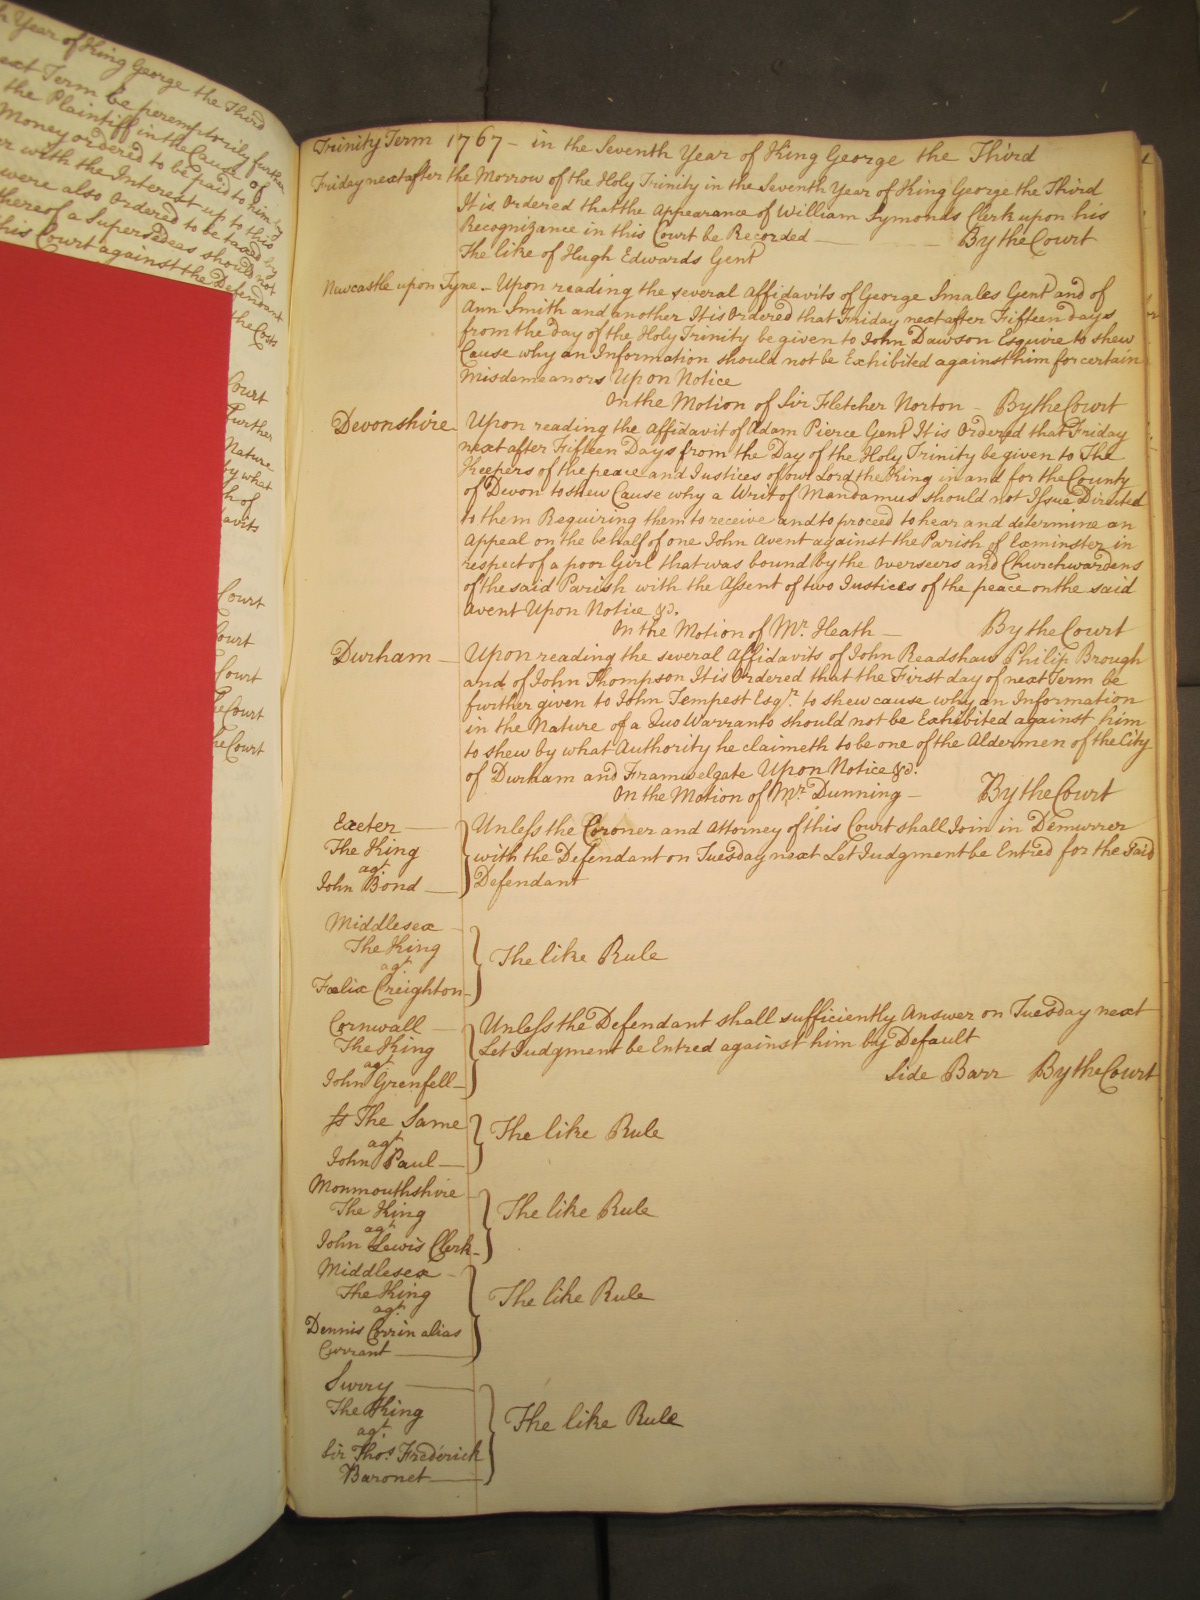 h Year of King George the Third
ext Term be peremptorily further
the Plaintiff in the Cause of
Money ordered to be paid to him by
er with the Interest up to this
were also Ordered to be taxed by
thereof a Supersedeas should not
his Court against the Defendant
the Costs
Court
Further
Nature
by what
h of
davits
Court
Court
Court
he Court
he Court
Trinity Term 1767 - in the Seventh Year of King George the Third
Friday next after the Morrow of the Holy Trinity in the Seventh Year of King George the Third
It is Ordered that the Appearance of William Symonds Clerk upon his
Recognizance in this Court be Recorded — By the Court
The like of Hugh Edwards Gent
Newcastle upon Tyne - Upon reading the several Affidavits of George Smales Gent and of
Ann Smith and another It is Ordered that Friday next after Fifteen days
from the day of the Holy Trinity be given to John Dawson Esquire to shew
Cause why an Information should not be Exhibited against him for certain
Misdemeanors Upon Notice
On the Motion of Sir Fletcher Norton - By the Court
Devonshire Upon reading the Affidavit of Adam Pierce Gent It is Ordered that Friday
next after Fifteen Days from the Day of the Holy Trinity be given to The
Keepers of the peace and Justices of our Lord the King in and for the County
of Devon to shew Cause why a Writ of Mandamus should not Issue Directed
to them Requiring them to receive and to proceed to hear and determine an
Appeal on the behalf of one John Avent against the Parish of Exminster in
respect of a poor Girl that was bound by the Overseers and Churchwardens
of the said Parish with the Assent of two Justices of the peace on the said
Avent Upon Notice &c.
On the Motion of Mr. Heath — By the Court
Durham — Upon reading the several Affidavits of John Readshaw Philip Brough
and of John Thompson It is Ordered that the First day of next Term be
further given to John Tempest Esqr. to shew cause why an Information
in the Nature of a Quo Warranto should not be Exhibited against him
to shew by what Authority he claimeth to be one of the Aldermen of the City
of Durham and Framwelgate Upon Notice &c.
On the Motion of Mr. Dunning — By the Court
Exeter —
The King
agt.
John Bond —
Unless the Coroner and Attorney of this Court shall Join in Demurrer
with the Defendant on Tuesday next Let Judgment be Entred for the said
Defendant
Middlesex
The King
agt.
Fœlix Creighton
The like Rule
Cornwall —
The King
agt
John Grenfell —
Unless the Defendant shall sufficiently Answer on Tuesday next
Let Judgment be Entred against him by Default
Side Barr By the Court
ss The Same
agt
John Paul —
The like Rule
Monmouthshire
The King
agt
John Lewis Clerk -
The like Rule
Middlesex -
The King
agt.
Dennis Corrin alias
Currant —
The like Rule
Surry —
The King
agt.
Sir Thos. Frederick
Baronet —
The like Rule